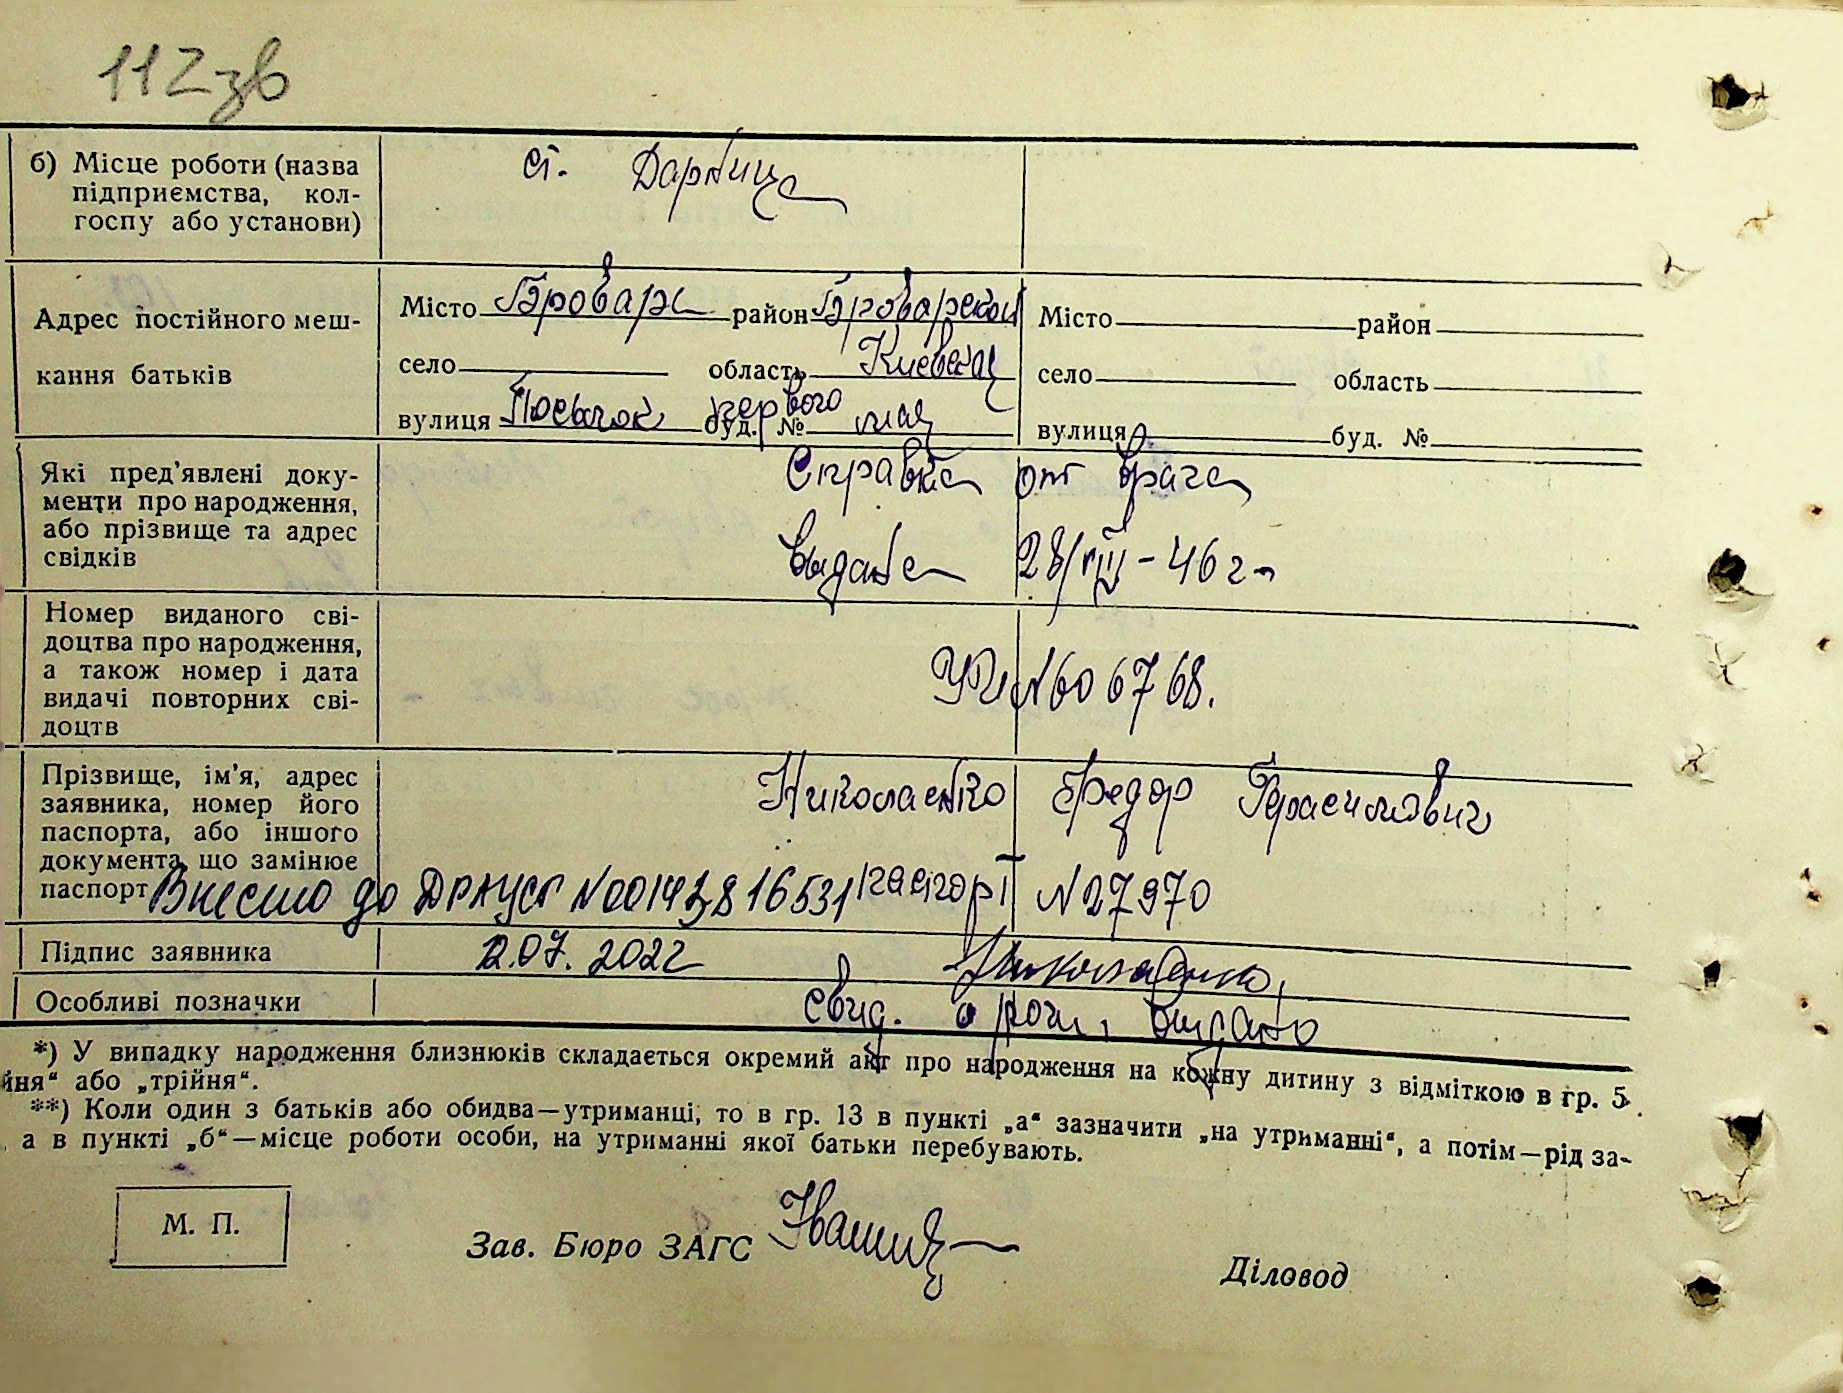 112зв
б) Місце роботи (назва
підприємства, кол-
госпу або установи)
ст. Дарница
Адрес постійного меш-
кання батьків
Місто Бровары район Броварской
село область Киевская
вулиця Посёлок буд. № первого мая
Місто район
село область
вулиця буд. №
Які пред’явлені доку-
менти про народження,
або прізвище та адрес
свідків
Справка от врача
выдана 28/VIII – 46 г.
Номер виданого сві-
доцтва про народження,
а також номер і дата
видачі повторних сві-
доцтв
№ 606768.
Прізвище, ім’я, адрес
заявника, номер його
паспорта, або іншого
документа, що замінює
паспорт
Николаенко Федор Герасимович
паспорт № 27970
Внесено до ДРАЦСГ № 00143816531
Підпис заявника
12.07.2022
Николаенко
Особливі позначки
свид. о рожд. выдано
*) У випадку народження близнюків складається окремий акт про народження на кожну дитину з відміткою в гр. 5
йня“ або „трійня“.
**) Коли один з батьків або обидва—утриманці, то в гр. 13 в пункті „а“ зазначити „на утриманні“, а потім—рід за-
, а в пункті „б“—місце роботи особи, на утриманні якої батьки перебувають.
М. П.
Зав. Бюро ЗАГС
Діловод